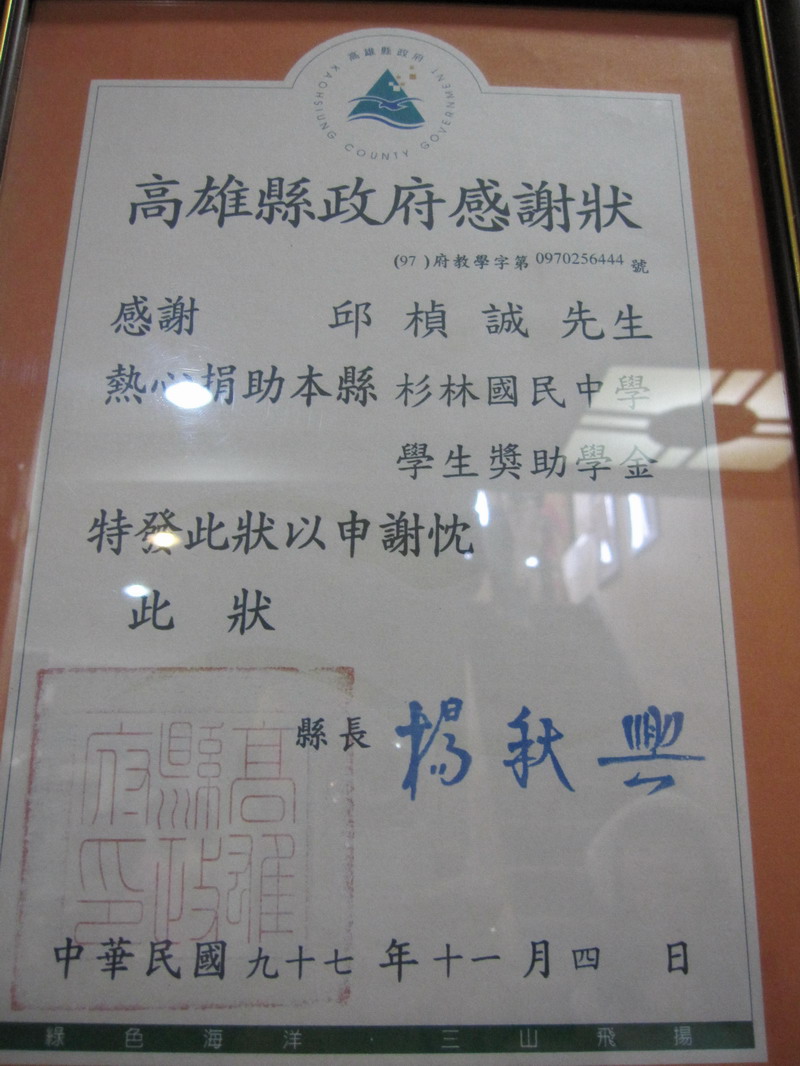 高雄縣政府
KAOHSIUNG COUNTY GOVERNMENT
高雄縣政府感謝狀
(97 )府教學字第 0970256444 號
感謝 邱楨誠 先生
熱心捐助本縣 杉林國民中學
學生獎助學金
特發此狀以申謝忱
此 狀
縣長 楊秋興
高雄縣政府印
中華民國 九十七 年 十一 月 四 日
綠色海洋 三山飛揚